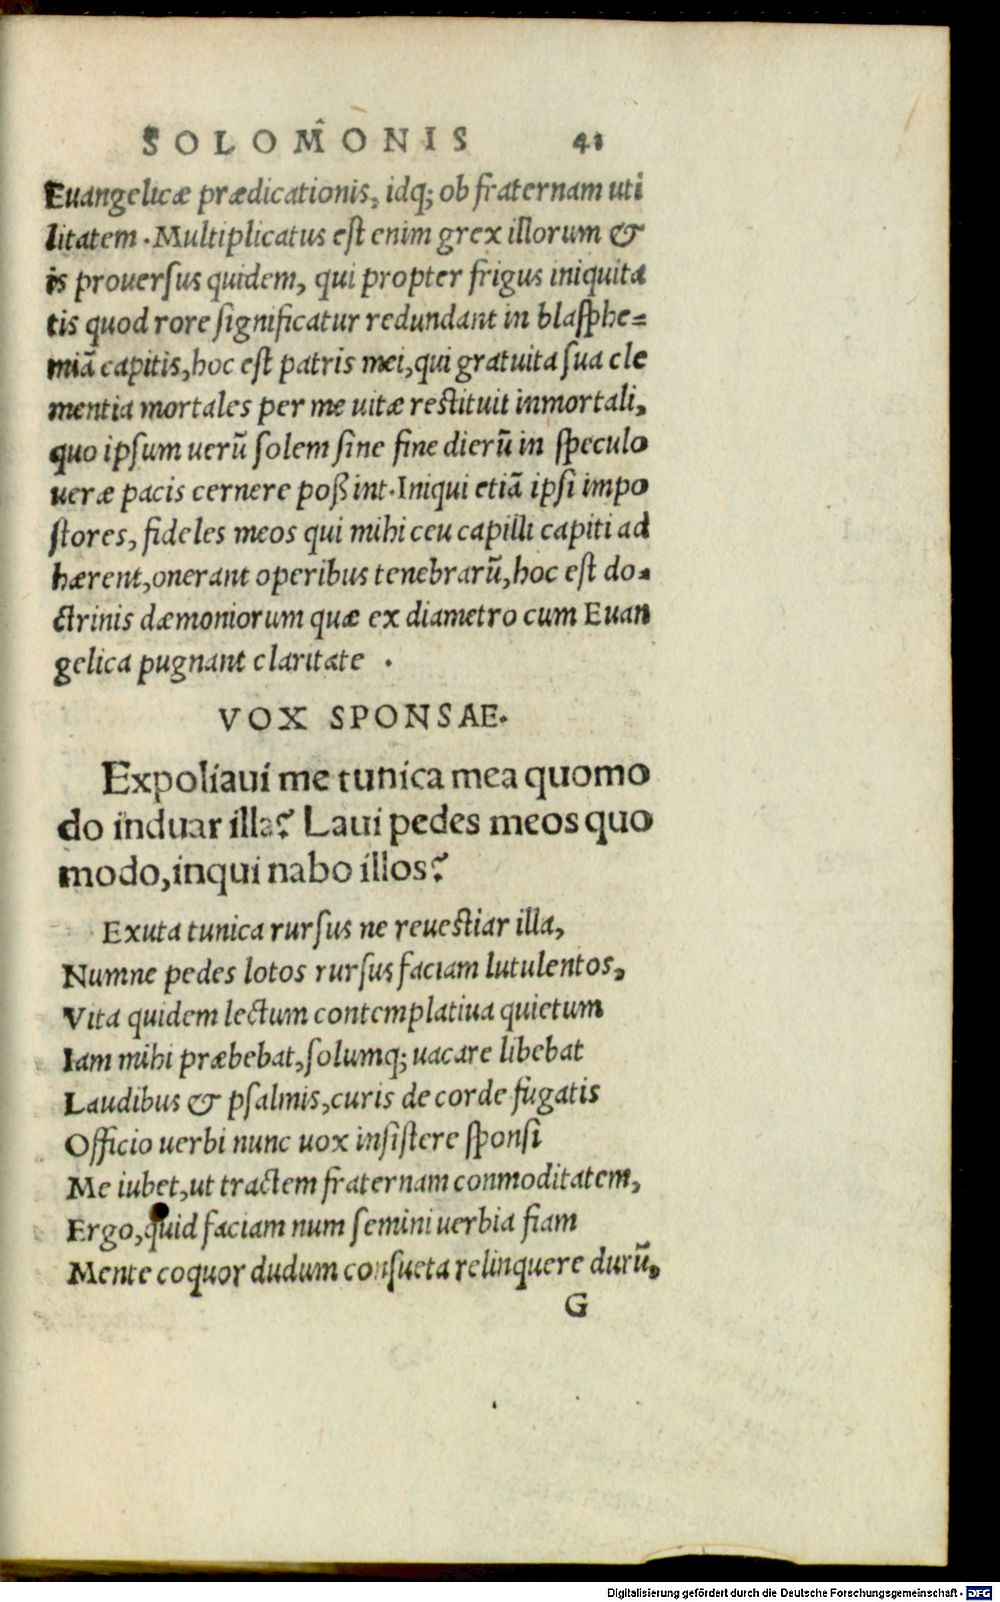 SOLOMONIS 41
Euangelicæ prædicationis, idq; ob fraternam uti
litatem. Multiplicatus est enim grex illorum &
is prouersus quidem, qui propter frigus iniquita
tis quod rore significatur redundant in blasphe=
miā capitis, hoc est patris mei, qui gratuita sua cle
mentia mortales per me uitæ restituit inmortali,
quo ipsum uerū solem sine fine dierū in speculo
ueræ pacis cernere poßint. Iniqui etiā ipsi impo
stores, fideles meos qui mihi ceu capilli capiti ad
hærent, onerant operibus tenebrarū, hoc est do=
ctrinis dæmoniorum quæ ex diametro cum Euan
gelica pugnant claritate .
VOX SPONSAE.
Expoliaui me tunica mea quomo
do induar illa? Laui pedes meos quo
modo, inquinabo illos?
Exuta tunica rursus ne reuestiar illa,
Numne pedes lotos rursus faciam lutulentos,
Vita quidem lectum contemplatiua quietum
Iam mihi præbebat, solumq; uacare libebat
Laudibus & psalmis, curis de corde fugatis
Officio uerbi nunc uox insistere sponsi
Me iubet, ut tractem fraternam conmoditatem,
Ergo, quid faciam num seminiuerbia fiam
Mente coquor dudum consueta relinquere durū,
G
Digitalisierung gefördert durch die Deutsche Forschungsgemeinschaft - DFG